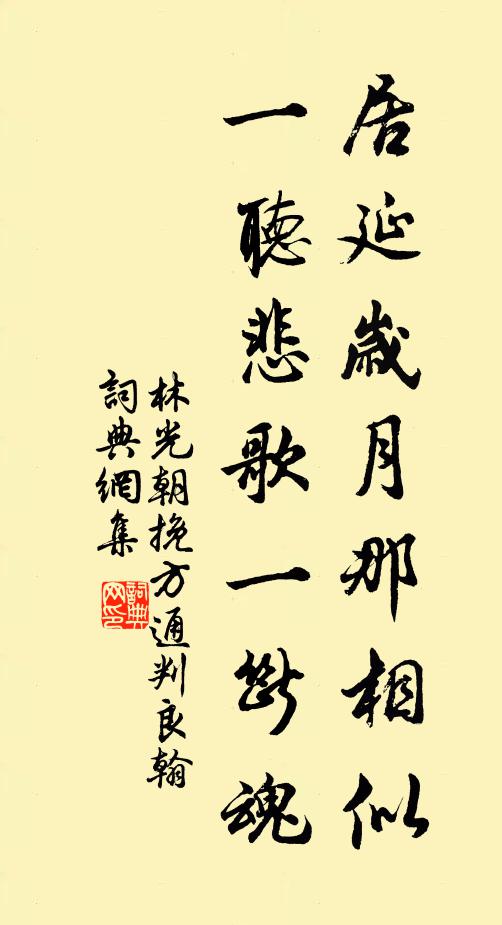 居延歲月那相似
一聽悲歌一斷魂
林光朝挽方通判良翰
詞典網集
詞典
网印